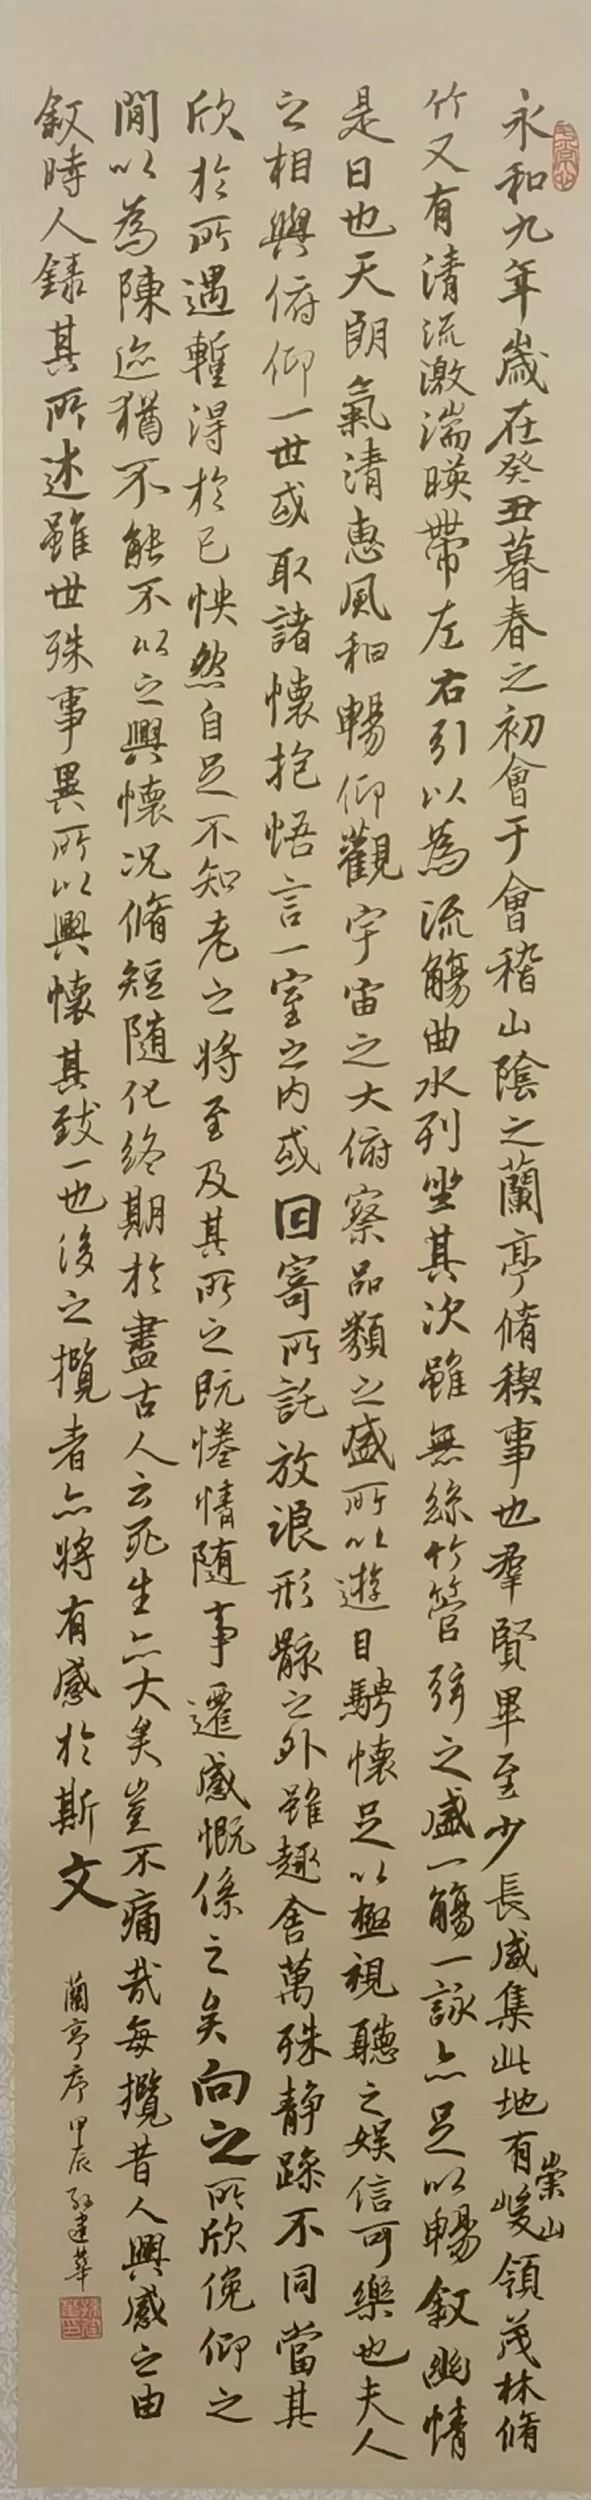 永和九年歲在癸丑暮春之初會于會稽山陰之蘭亭脩稧事也羣賢畢至少長咸集此地有崇山峻領茂林脩
竹又有清流激湍暎帶左右引以為流觴曲水列坐其次雖無絲竹管弦之盛一觴一詠亦足以暢敘幽情
是日也天朗氣清惠風和暢仰觀宇宙之大俯察品類之盛所以遊目騁懷足以極視聽之娛信可樂也夫人
之相與俯仰一世或取諸懷抱悟言一室之內或因寄所託放浪形骸之外雖趣舍萬殊靜躁不同當其
欣於所遇暫得於己怏然自足不知老之將至及其所之既惓情隨事遷感慨係之矣向之所欣俛仰之
閒以為陳迹猶不能不以之興懷況脩短隨化終期於盡古人云死生亦大矣豈不痛哉每攬昔人興感之由
敘時人錄其所述雖世殊事異所以興懷其致一也後之攬者亦將有感於斯文
蘭亭序甲辰建華